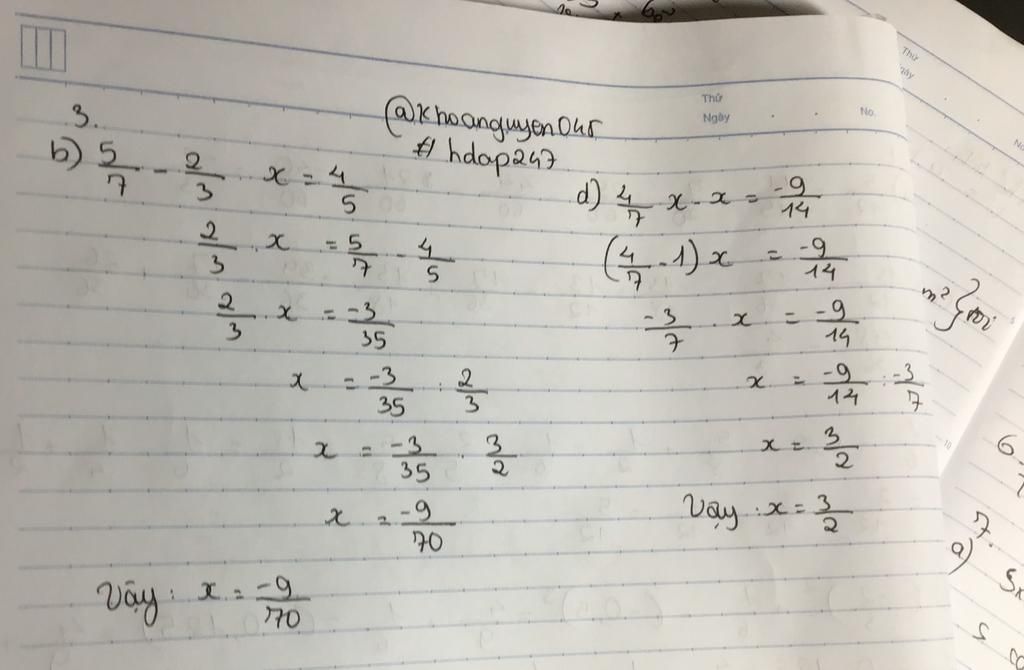 Thứ
Ngày
No.
3.
@Khoanguyen045
# hdap247
b) 5/7 - 2/3 . x = 4/5
2/3 . x = 5/7 - 4/5
2/3 . x = -3/35
x = -3/35 : 2/3
x = -3/35 . 3/2
x = -9/70
Vậy : x = -9/70
d) 4/7 x - x = -9/14
(4/7 - 1) x = -9/14
-3/7 . x = -9/14
x = -9/14 : -3/7
x = 3/2
Vậy : x = 3/2
Thứ
m²
6
7.
a)